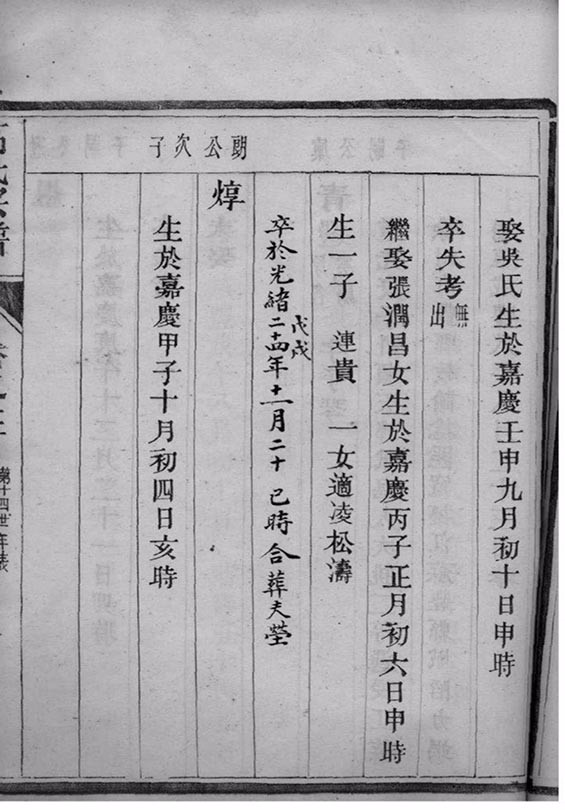 娶吳氏生於嘉慶壬申九月初十日申時
卒失考 無出
繼娶張潤昌女生於嘉慶丙子正月初六日申時
生一子 連貴 一女適凌松濤
卒於光緒二十四年戊戌十一月二十巳時合葬夫塋
朗公次子
焞
生於嘉慶甲子十月初四日亥時
第十四世年表